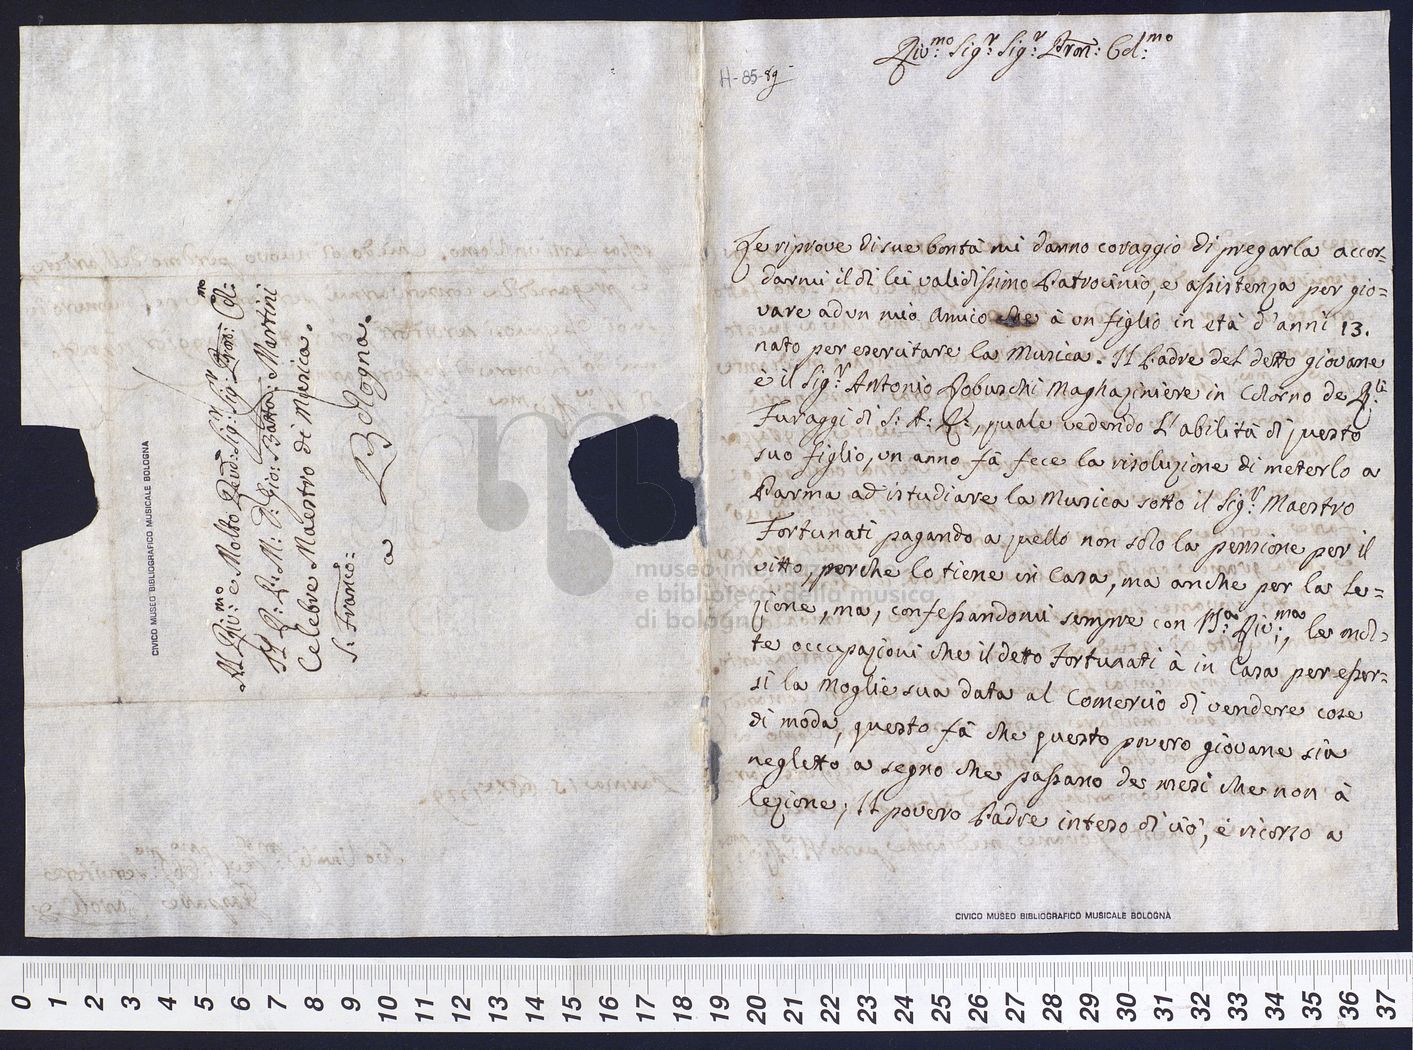 H-85-89
Riv:mo Sig:r Sig:r Pron: Col:mo
Le riprove di sue bontà mi danno coraggio di pregarla accor=
darmi il di lei validissimo Patrocinio, e assistenza per gio=
vare ad un mio Amico che à un figlio in età d'anni 13.
nato per esercitare la Musica. Il Padre del detto giovane
e il Sig:r Antonio Lobuschi Maghaziniere in Colorno de R:li
Foraggi di S: A: R:, quale vedendo l'abilità di questo
suo figlio, un anno fà fece la risoluzione di meterlo a
Parma ad istudiare la Musica sotto il Sig:r Maestro
Fortunati pagando a quello non solo la pensione per il
vitto, perche lo tiene in Casa, ma anche per la Le=
zione, ma, confessandomi sempre con P:S:a Riv:ma, le mol=
te occupazioni che il detto Fortunati à in Casa per esser=
si la Moglie sua data al Comercio di vendere cose
di moda, questo fà che questo povero giovane sia
negletto a segno che passano de mesi che non à
lezione; Il povero Padre inteso di ciò, è ricorso a
CIVICO MUSEO BIBLIOGRAFICO MUSICALE BOLOGNA
Al Riv:mo e Molto Rend: Sig:r Sig:r Pron: Col:mo
Il P: R: M: D: Gio: Batta: Martini
Celebre Maestro di Musica.
S: Franco:
a Bologna.
CIVICO MUSEO BIBLIOGRAFICO MUSICALE BOLOGNA
museo internazionale
e biblioteca della musica
di bologna
0 1 2 3 4 5 6 7 8 9 10 11 12 13 14 15 16 17 18 19 20 21 22 23 24 25 26 27 28 29 30 31 32 33 34 35 36 37